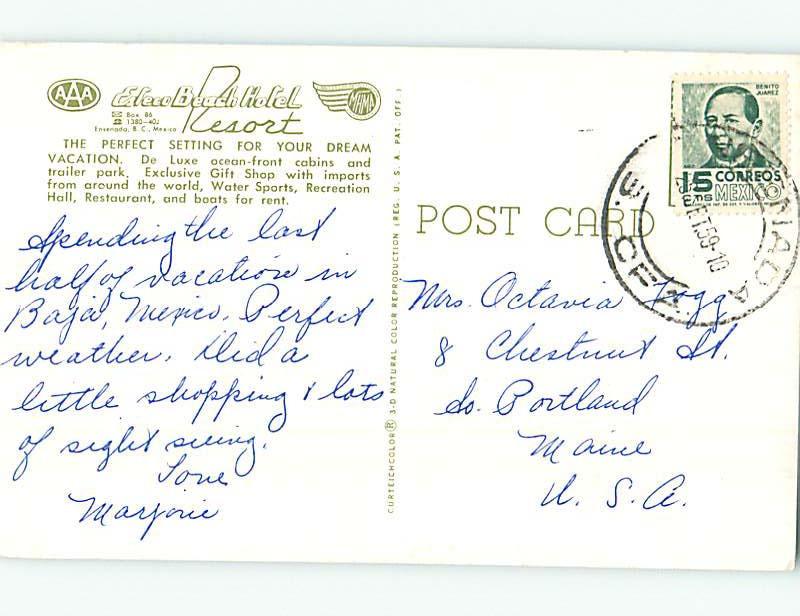 AAA
Estero Beach Hotel
Resort
MHMA
Box 86
1380-40J
Ensenada, B. C., Mexico
THE PERFECT SETTING FOR YOUR DREAM
VACATION. De Luxe ocean-front cabins and
trailer park. Exclusive Gift Shop with imports
from around the world, Water Sports, Recreation
Hall, Restaurant, and boats for rent.
Spending the last
half of vacation in
Baja, Mexico. Perfect
weather. Did a
little shopping & lots
of sight seeing.
Love
Marjorie
CURTEICHCOLOR® 3-D NATURAL COLOR REPRODUCTION (REG. U. S. A. PAT. OFF.)
POST CARD
BENITO
JUAREZ
15
CTS
CORREOS
MEXICO
59-10
Mrs. Octavia Fogg
8 Chestnut St.
So. Portland
Maine
U. S. A.